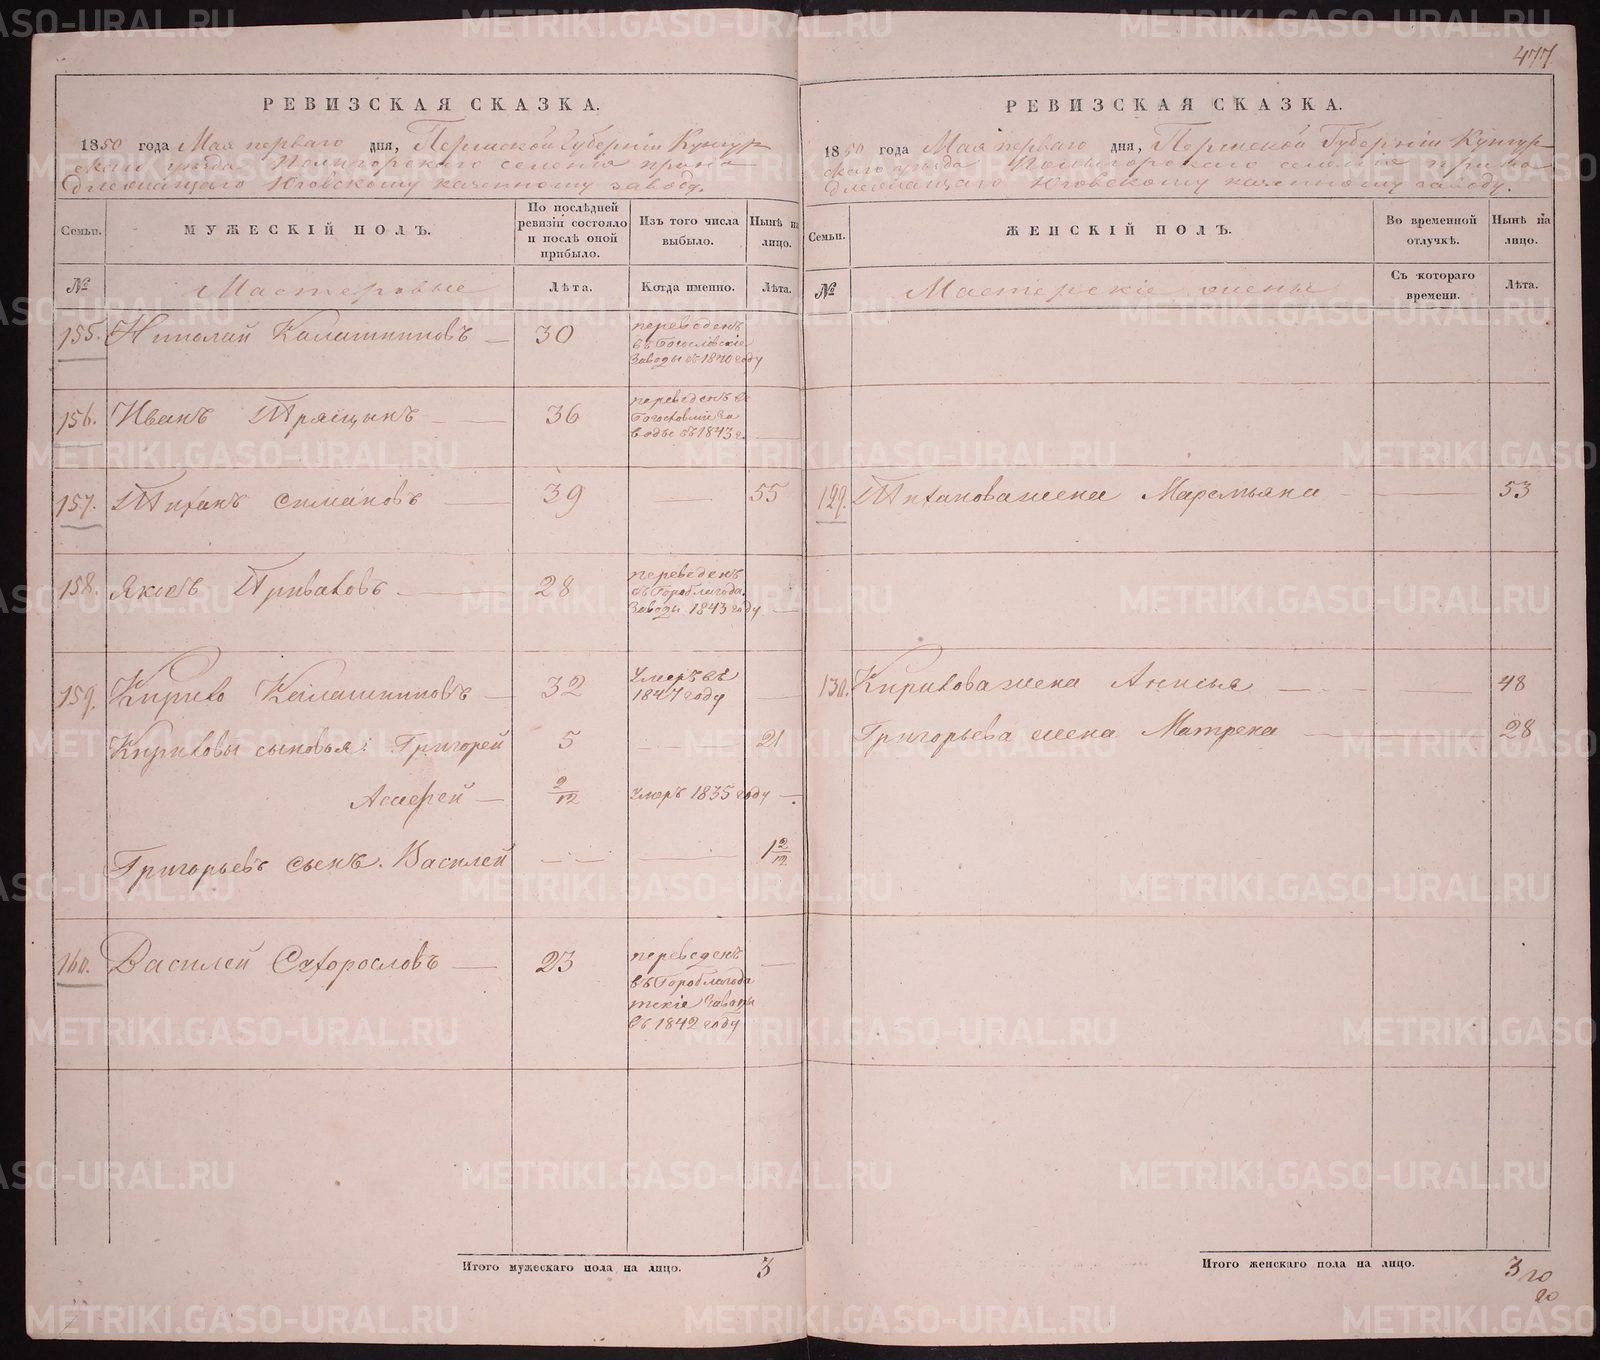 477
РЕВИЗСКАЯ СКАЗКА.
1850 года Мая перваго дня, Пермской Губерніи Кунгур
скаго уѣзда селенія прина
длежащаго Юговскому казенному заводу.
Семьи.
МУЖЕСКІЙ ПОЛЪ.
По послѣдней ревизіи состояло и послѣ оной прибыло.
Изъ того числа выбыло.
Нынѣ на лицо.
№
Мастеровые
Лѣта.
Когда именно.
Лѣта.
155. Николай Калашниковъ — 30 переведенъ
въ Богословскіе
Заводы въ 1840 году
156. Иванъ Тряцынъ — 36 переведенъ въ
Богословскіе за
воды въ 1843 г.
157. Титанъ Симановъ — 39 — 55
158. Яковъ Приваловъ — 28 переведенъ
въ Гороблагода.
Заводы 1843 году —
159. Кирило Калашниковъ — 32 Умеръ въ
1847 году —
Кириловы сыновья: Григорей 5 — 21
Андрей — 2/12 Умеръ 1835 году —
Григорьевъ сынъ. Василей — — 1 2/12
160. Василей — 23 переведенъ —
въ Гороблагода
тскіе Заводы
въ 1842 году
Итого мужескаго пола на лицо. 3
РЕВИЗСКАЯ СКАЗКА.
1850 года Мая перваго дня, Пермской Губерніи Кунгур
скаго уѣзда селенія прина
длежащаго Юговскому казенному заводу.
Семьи.
ЖЕНСКІЙ ПОЛЪ.
Во временной отлучкѣ.
Нынѣ на лицо.
№
Мастерскіе жены
Съ котораго времени.
Лѣта.
129. жена Маремьяна — 53
130. Кирилова жена Анисья — 48
Григорьева жена Матрена — 28
Итого женскаго пола на лицо. 3
METRIKI.GASO-URAL.RU